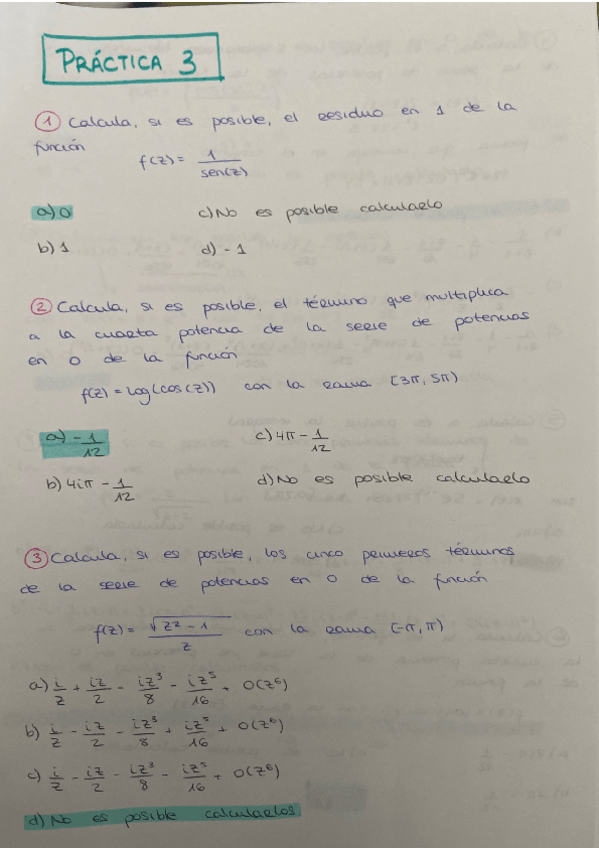 PRÁCTICA 3
① Calcula, si es posible, el residuo en 1 de la
función
f(z) = 1/sen(z)
a) 0 c) No es posible calcularlo
b) 1 d) -1
② Calcula, si es posible, el término que multiplica
a la cuarta potencia de la serie de potencias
en 0 de la función
f(z) = log(cos(z)) con la rama [3π, 5π)
a) -1/12 c) 4π - 1/12
b) 4iπ - 1/12 d) No es posible calcularlo
③ Calcula, si es posible, los cinco primeros términos
de la serie de potencias en 0 de la función
f(z) = √(z² - 1)/z con la rama [-π, π)
a) i/z + iz/2 - iz³/8 - iz⁵/16 + O(z⁶)
b) i/z - iz/2 - iz³/8 + iz⁵/16 + O(z⁶)
c) i/z - iz/2 - iz³/8 - iz⁵/16 + O(z⁶)
d) No es posible calcularlos